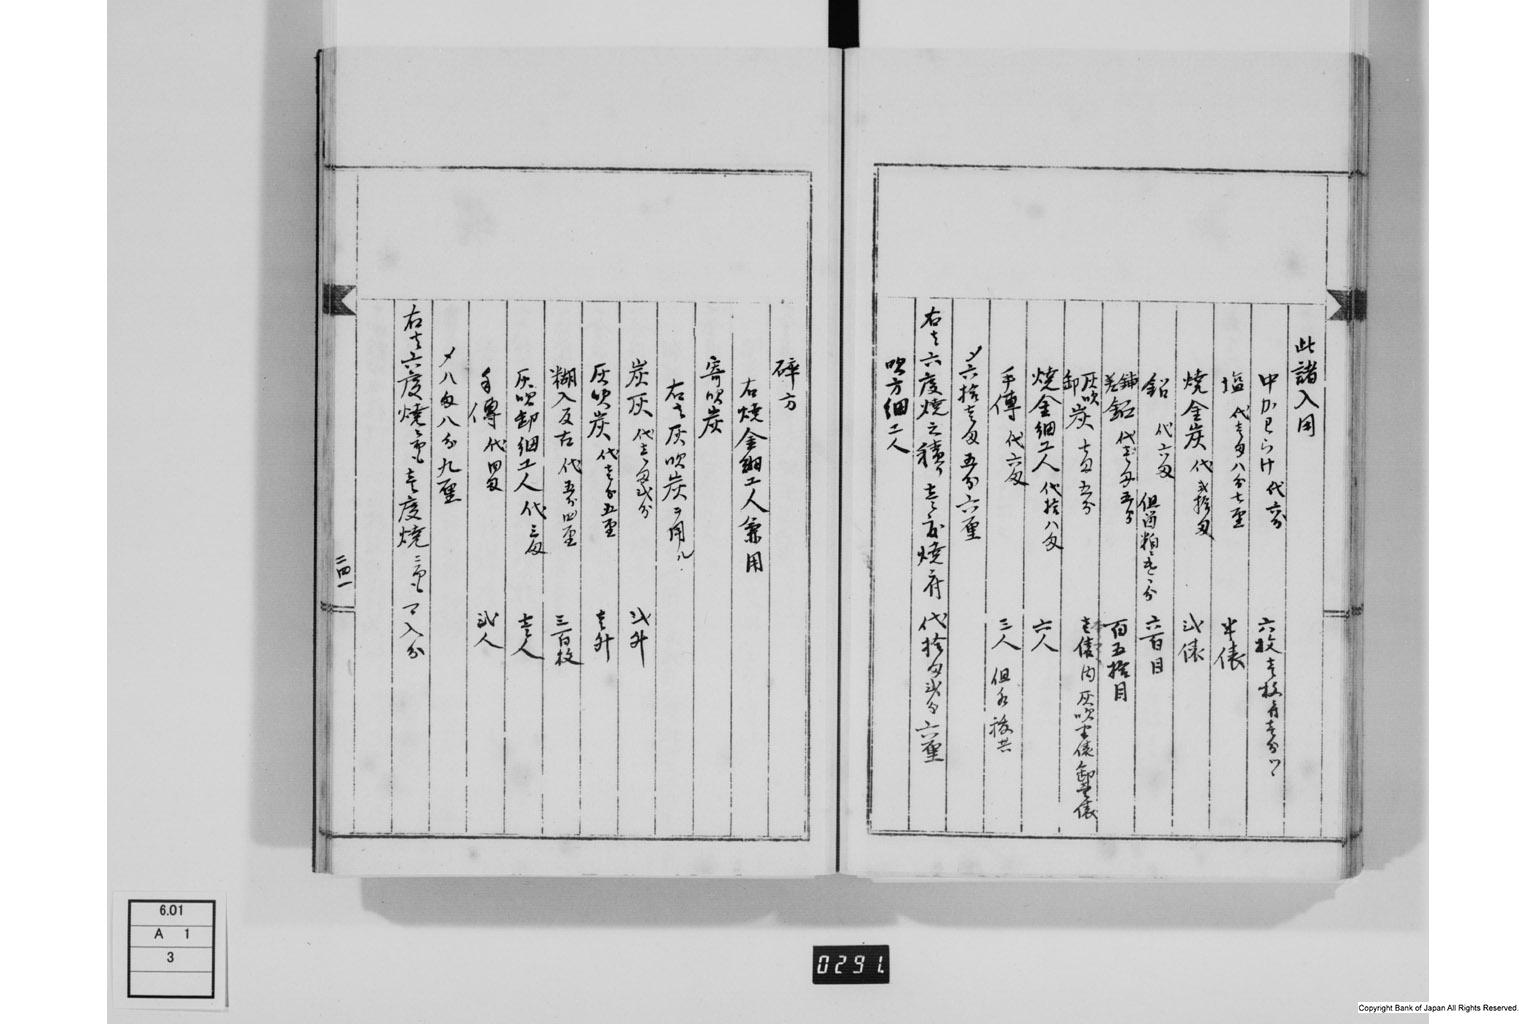 此諸入用
中かわらけ 代六分 六枚 壱枚ニ付壱分ツヽ
塩 代壱匁八分七厘 半俵
焼金炭 代弐拾匁 弐俵
鉛 代六匁 但百粕壱分 六百目
鋪差鉛 代壱匁五分 百五拾目
灰吹卸炭 七匁五分 壱俵 内 灰吹半俵 卸半俵
焼金細工人 代拾八匁 六人
手傳 代六匁 三人
〆六拾壱匁五分六厘
右者六度焼之積り壱度焼ニ付 代拾匁弐分六厘
吹方細工人
砕方
右焼金細工人兼用
寄吹炭
右者灰吹炭ヲ用ル
炭灰 代壱匁弐分 弐升
灰吹炭 代壱分五厘 壱升
糊入反古 代五分四厘 三百枚
灰吹卸細工人 代三匁 壱人
手傳 代四匁 弐人
〆八匁八分九厘
右者六度焼ニ而も壱度焼ニ而も入分
二四一
6.01
A 1
3
0291.
Copyright Bank of Japan All Rights Reserved.